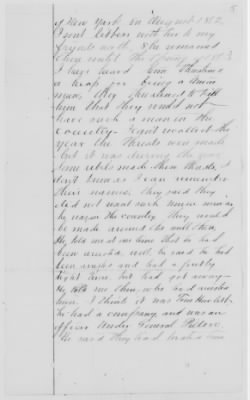 of New York in August 1862,
I sent letters with her to my
friends north, She remained
there until the Spring of 1863
I have heard him threatened
a heap for being a Union
man, they threatened to kill
him that they would not
have such a man in the
country. I cant recollect the
year the threats were made
but it was during the war
Some rebels made them threats. I
dont know as I can remember
their names, They said they
did not want such union men in
the country they would
be made
He told me at one time that he had
been arrested, he said he had
been and had a pretty
tight time but had got away
He told me then who had arrested
him. I think it was
he had a company, and was an
officer under General Pillow.
He said they had